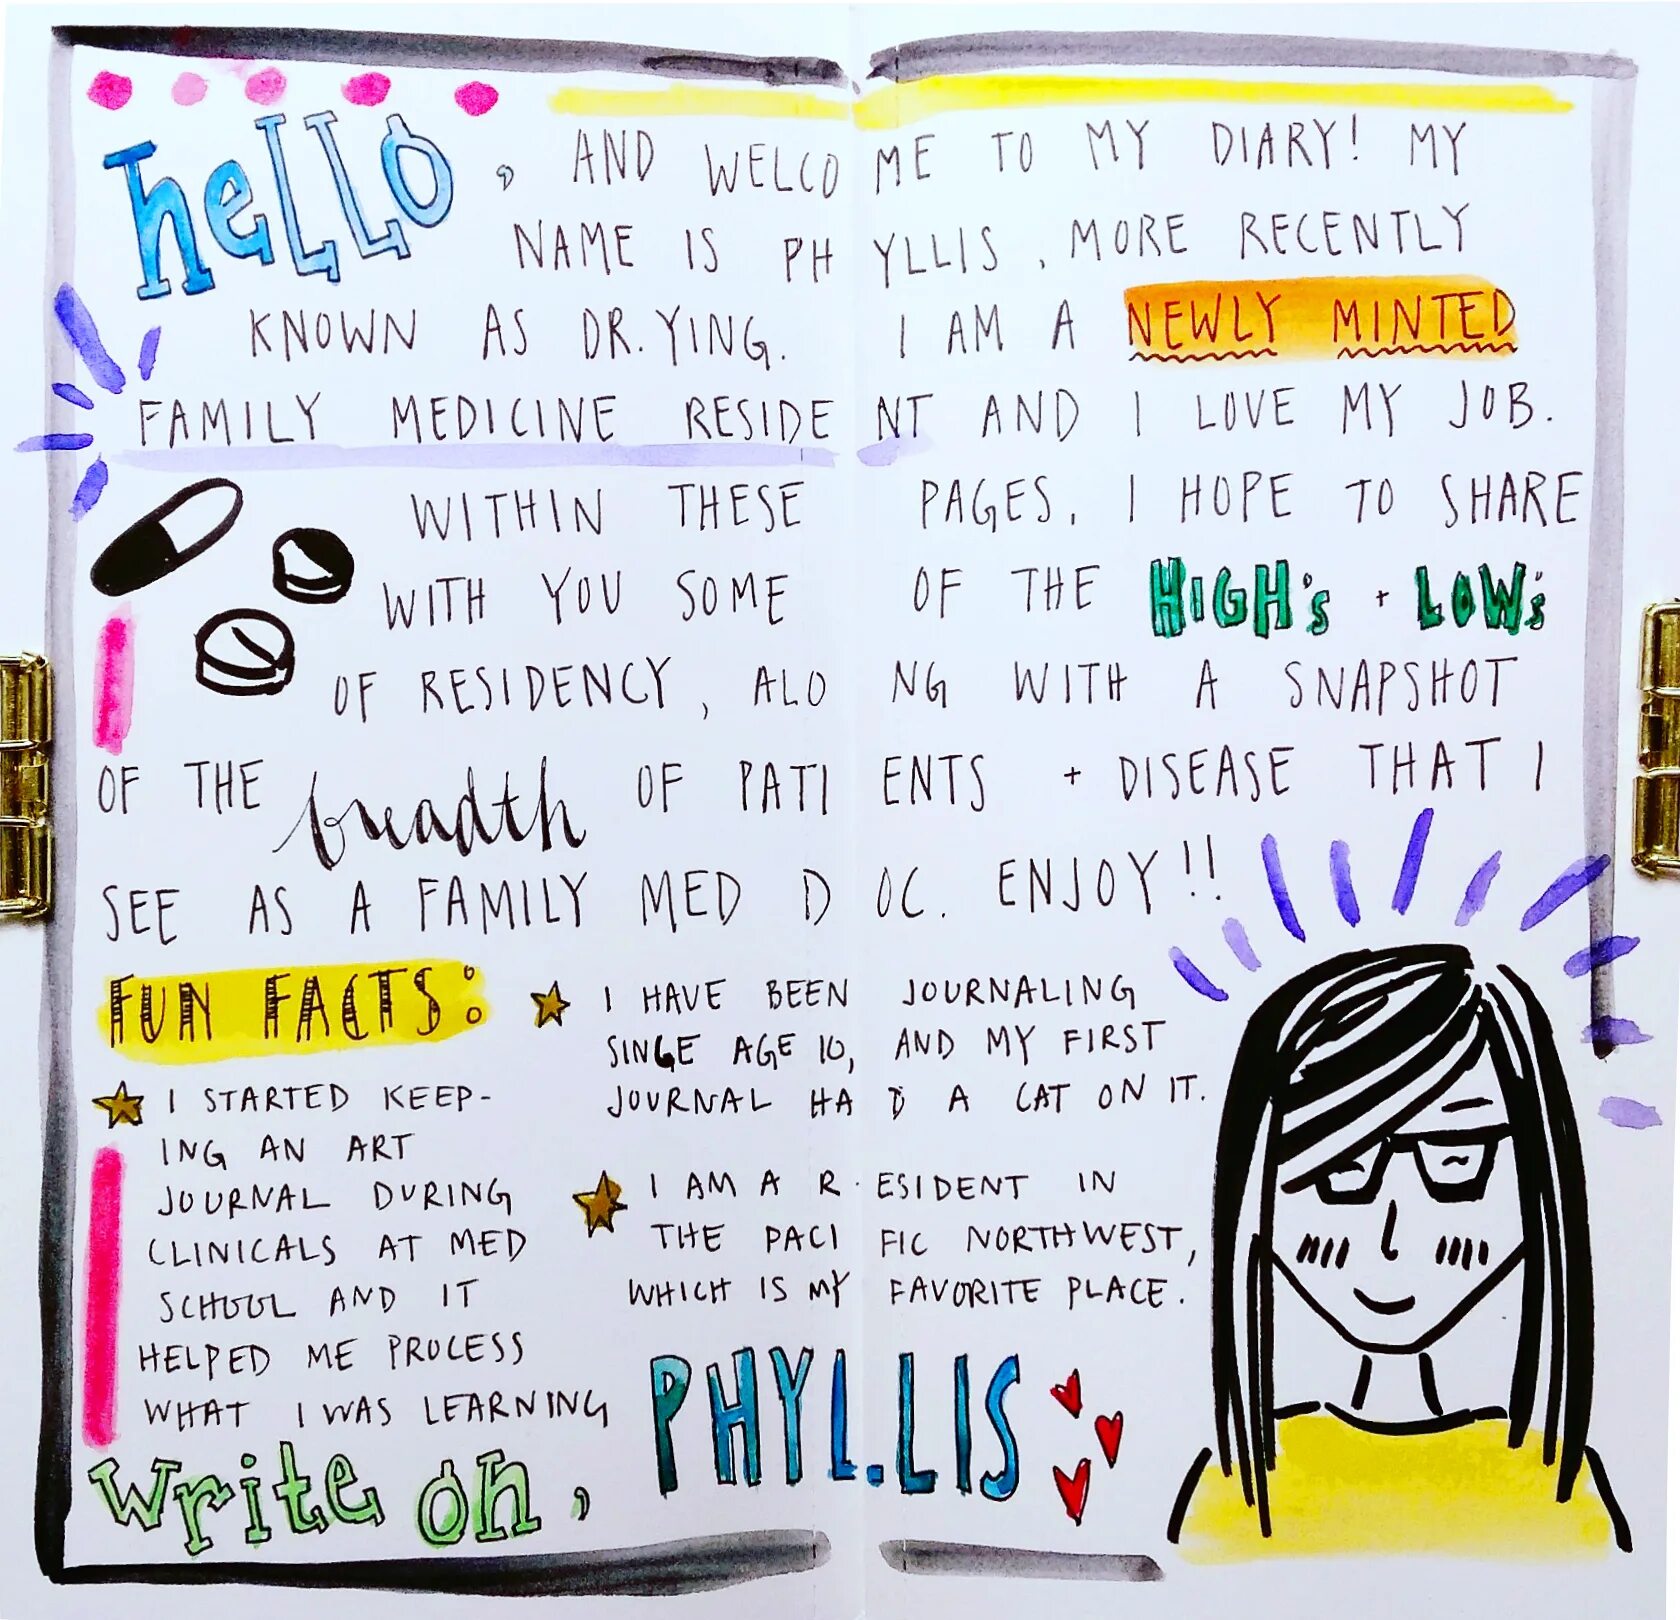 hello, AND WELCOME TO MY DIARY! MY
NAME IS PHYLLIS, MORE RECENTLY
KNOWN AS DR. YING. I AM A NEWLY MINTED
FAMILY MEDICINE RESIDENT AND I LOVE MY JOB.
WITHIN THESE PAGES, I HOPE TO SHARE
WITH YOU SOME OF THE HIGH's + LOW's
OF RESIDENCY, ALONG WITH A SNAPSHOT
OF THE breadth OF PATIENTS + DISEASE THAT I
SEE AS A FAMILY MED DOC. ENJOY!!
FUN FACTS:
I STARTED KEEP-
ING AN ART
JOURNAL DURING
CLINICALS AT MED
SCHOOL AND IT
HELPED ME PROCESS
WHAT I WAS LEARNING
I HAVE BEEN JOURNALING
SINCE AGE 10, AND MY FIRST
JOURNAL HAD A CAT ON IT.
I AM A RESIDENT IN
THE PACIFIC NORTHWEST,
WHICH IS MY FAVORITE PLACE.
write on, PHYLLIS